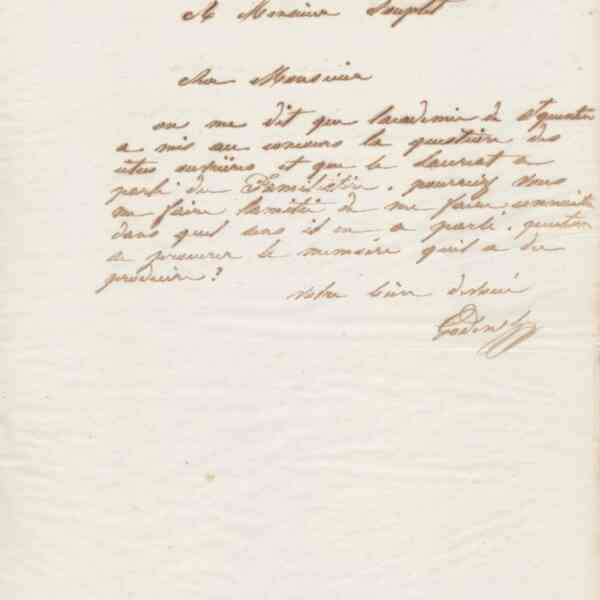 A Monsieur Souplet
Cher Monsieur
on me dit que lacademie de St quentin
a mis au concours la question des
cités ouvrières et que le lauréat a
parlé du Familistère. pourriez vous
me faire lamitié de me faire connaitre
dans quel sens il en a parlé,
a procurer le mémoire quil a du
produire?
votre bien devoué
Godin